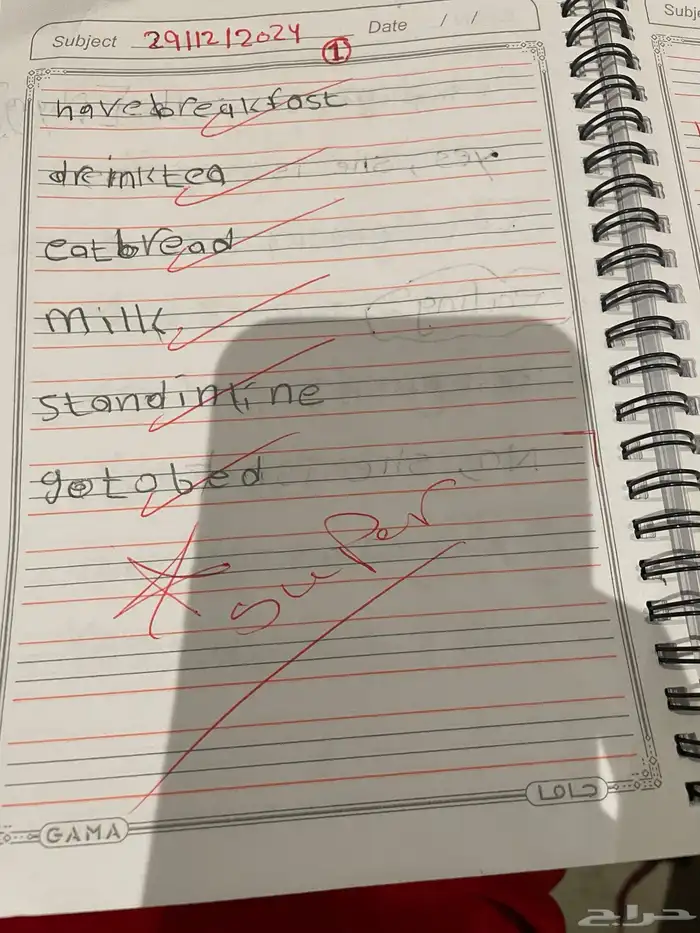 Subject 29/12/2024 Date / /
1
havebreakfast
dreinktea
eatbread
milk
standinline
gotobed
super
GAMA
جاما
Subje
حراج